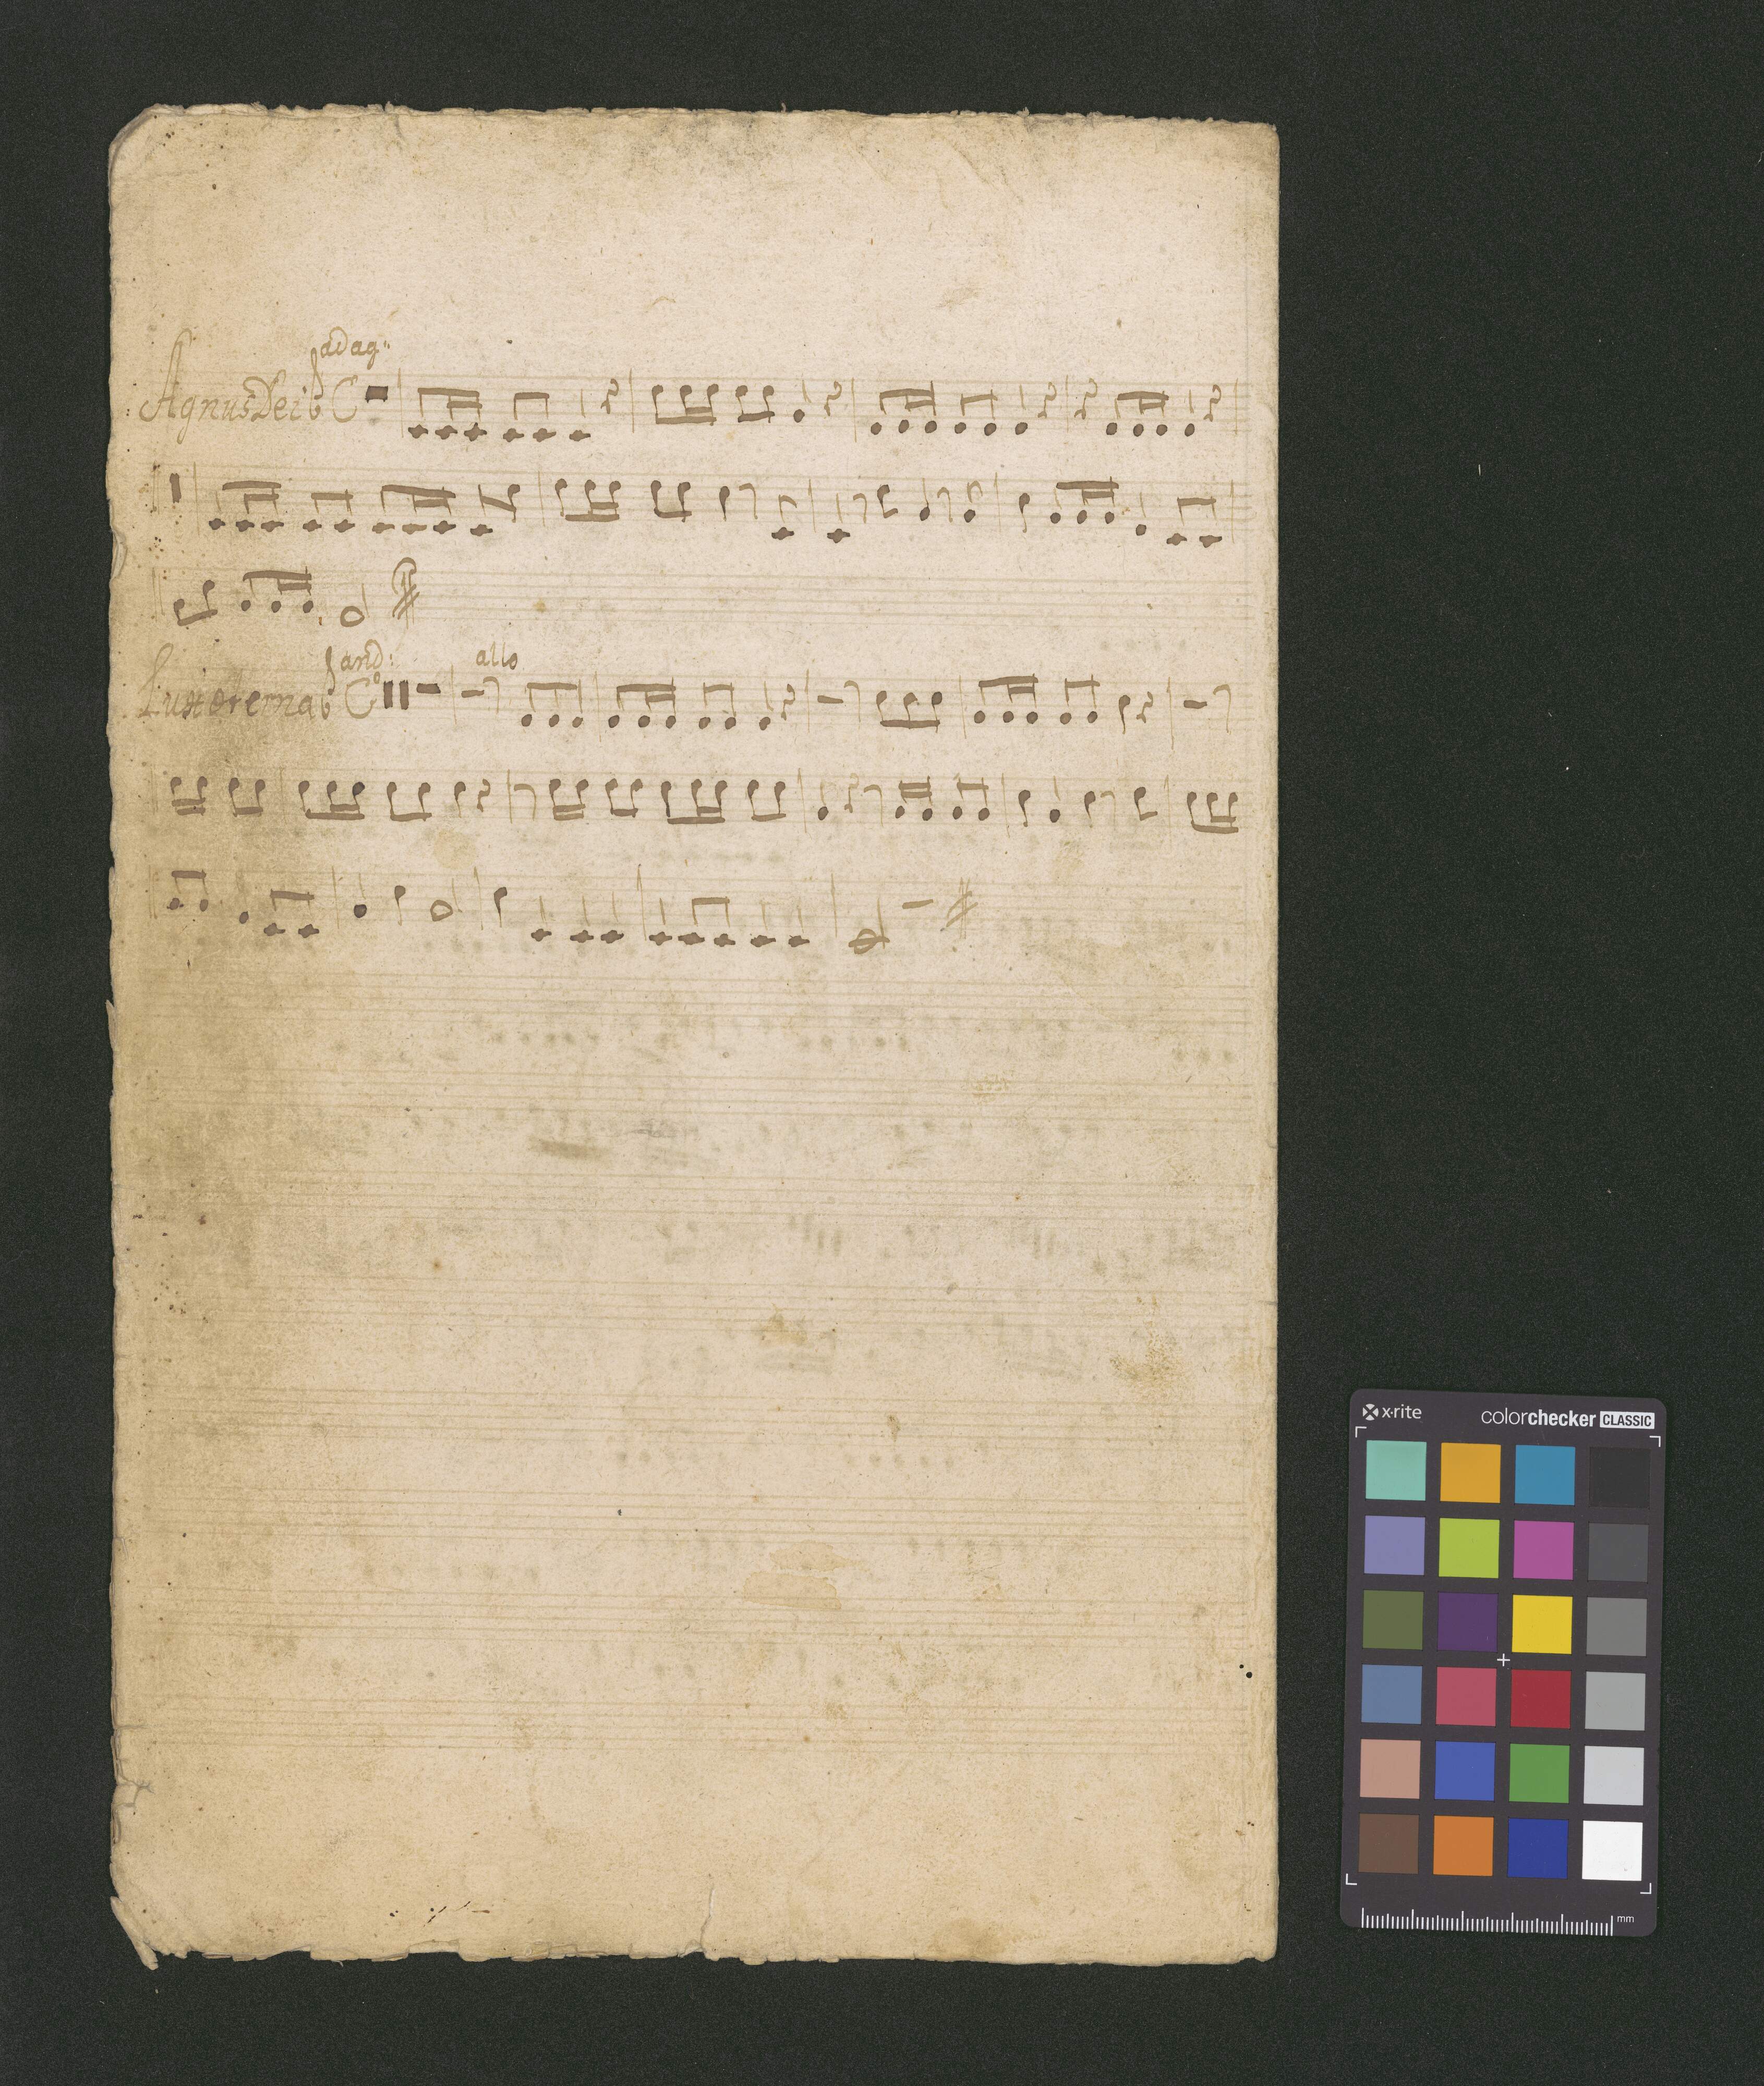 adag:
Agnus Dei
and: allo
Lux æterna
x·rite colorchecker CLASSIC
mm